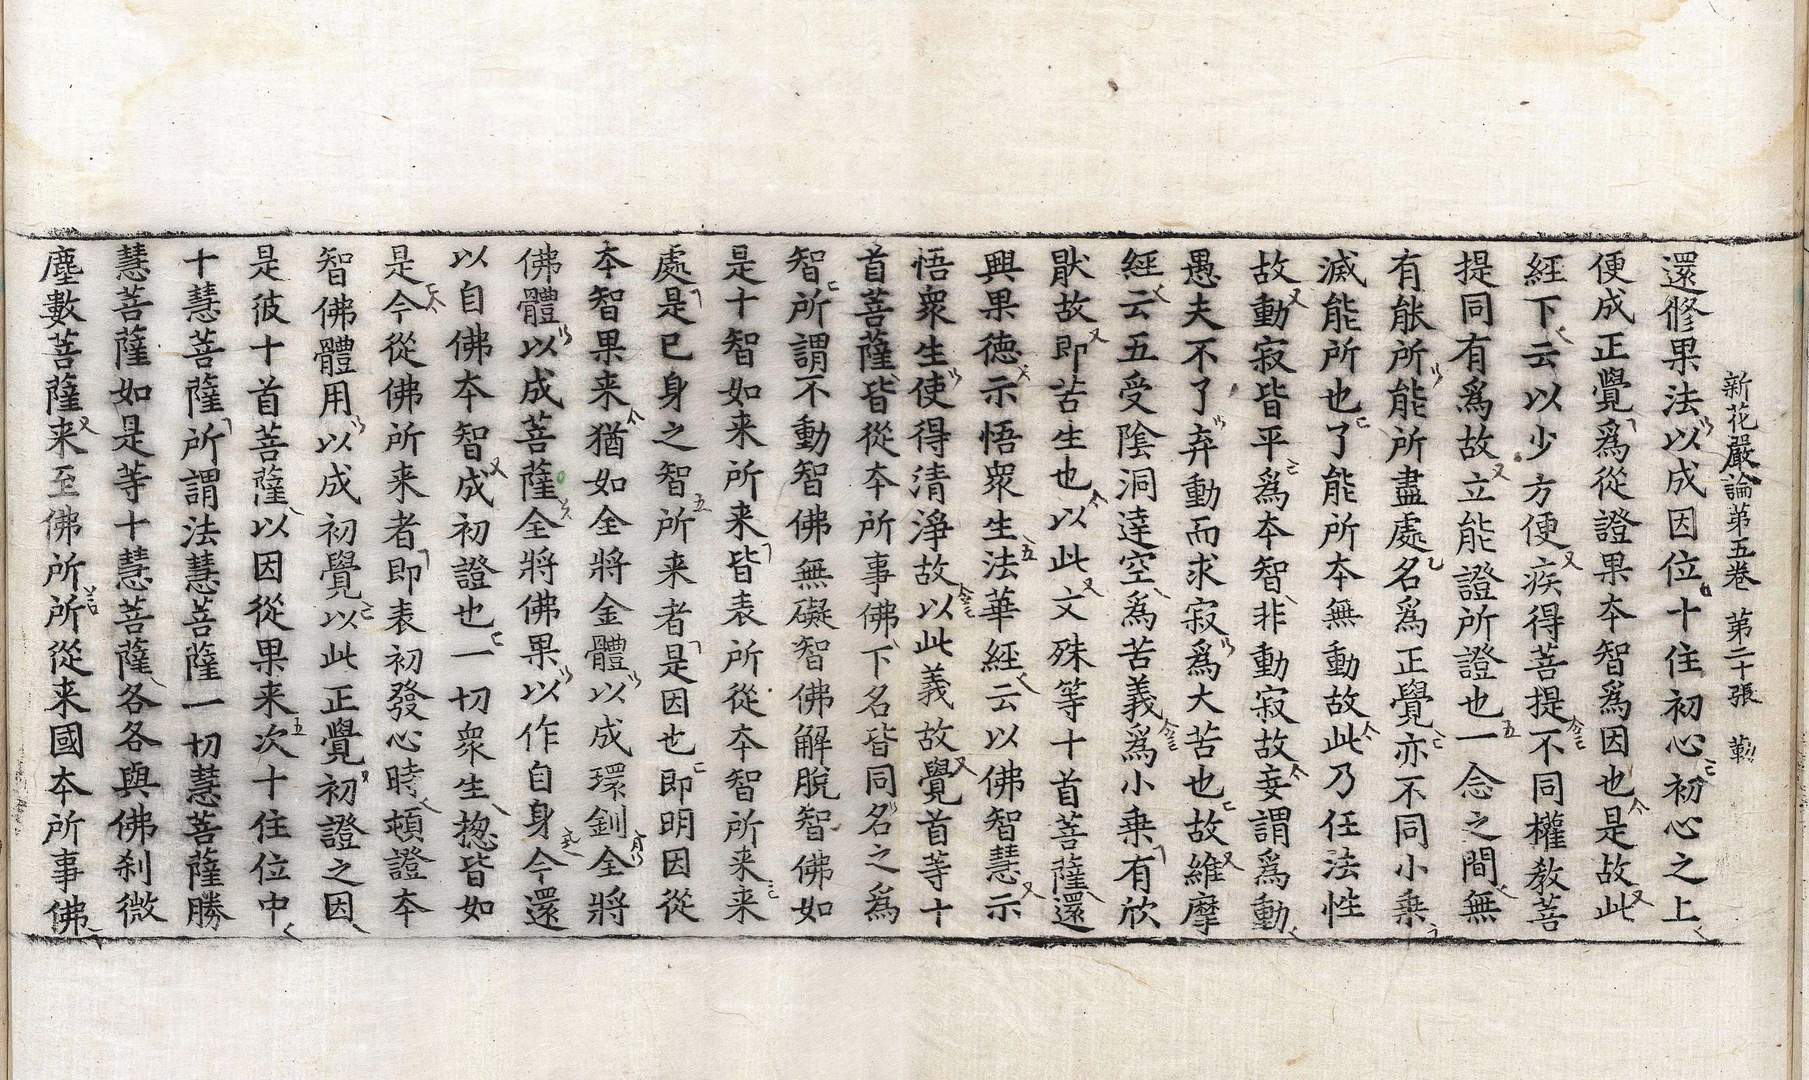 新花嚴論第五卷 第二十張 勤
還修果法以成因位十住初心初心之上
便成正覺爲從證果本智爲因也是故此
經下云以少方便疾得菩提不同權敎菩
提同有爲故立能證所證也一念之間無
有能所能所盡處名爲正覺亦不同小乗
滅能所也了能所本無動故此乃任法性
故動寂皆平爲本智非動寂故妄謂爲動
愚夫不了弃動而求寂爲大苦也故維摩
經云五受隂洞達空爲苦義爲小乗有欣
猒故即苦生也以此文殊等十首菩薩還
興果德示悟衆生法華經云以佛智慧示
悟衆生使得清淨故以此義故覺首等十
首菩薩皆從本所事佛下名皆同名之爲
智所謂不動智佛無礙智佛解脫智佛如
是十智如来所来皆表所從本智所来来
處是已身之智所来者是因也即明因從
本智果来猶如全將金體以成環釧全將
佛體以成菩薩全將佛果以作自身今還
以自佛本智成初證也一切衆生揔皆如
是今從佛所来者即表初發心時頓證本
智佛體用以成初覺以此正覺初證之因
是彼十首菩薩以因從果来次十住位中
十慧菩薩所謂法慧菩薩一切慧菩薩勝
慧菩薩如是等十慧菩薩各各與佛刹微
塵數菩薩来至佛所所從来國本所事佛